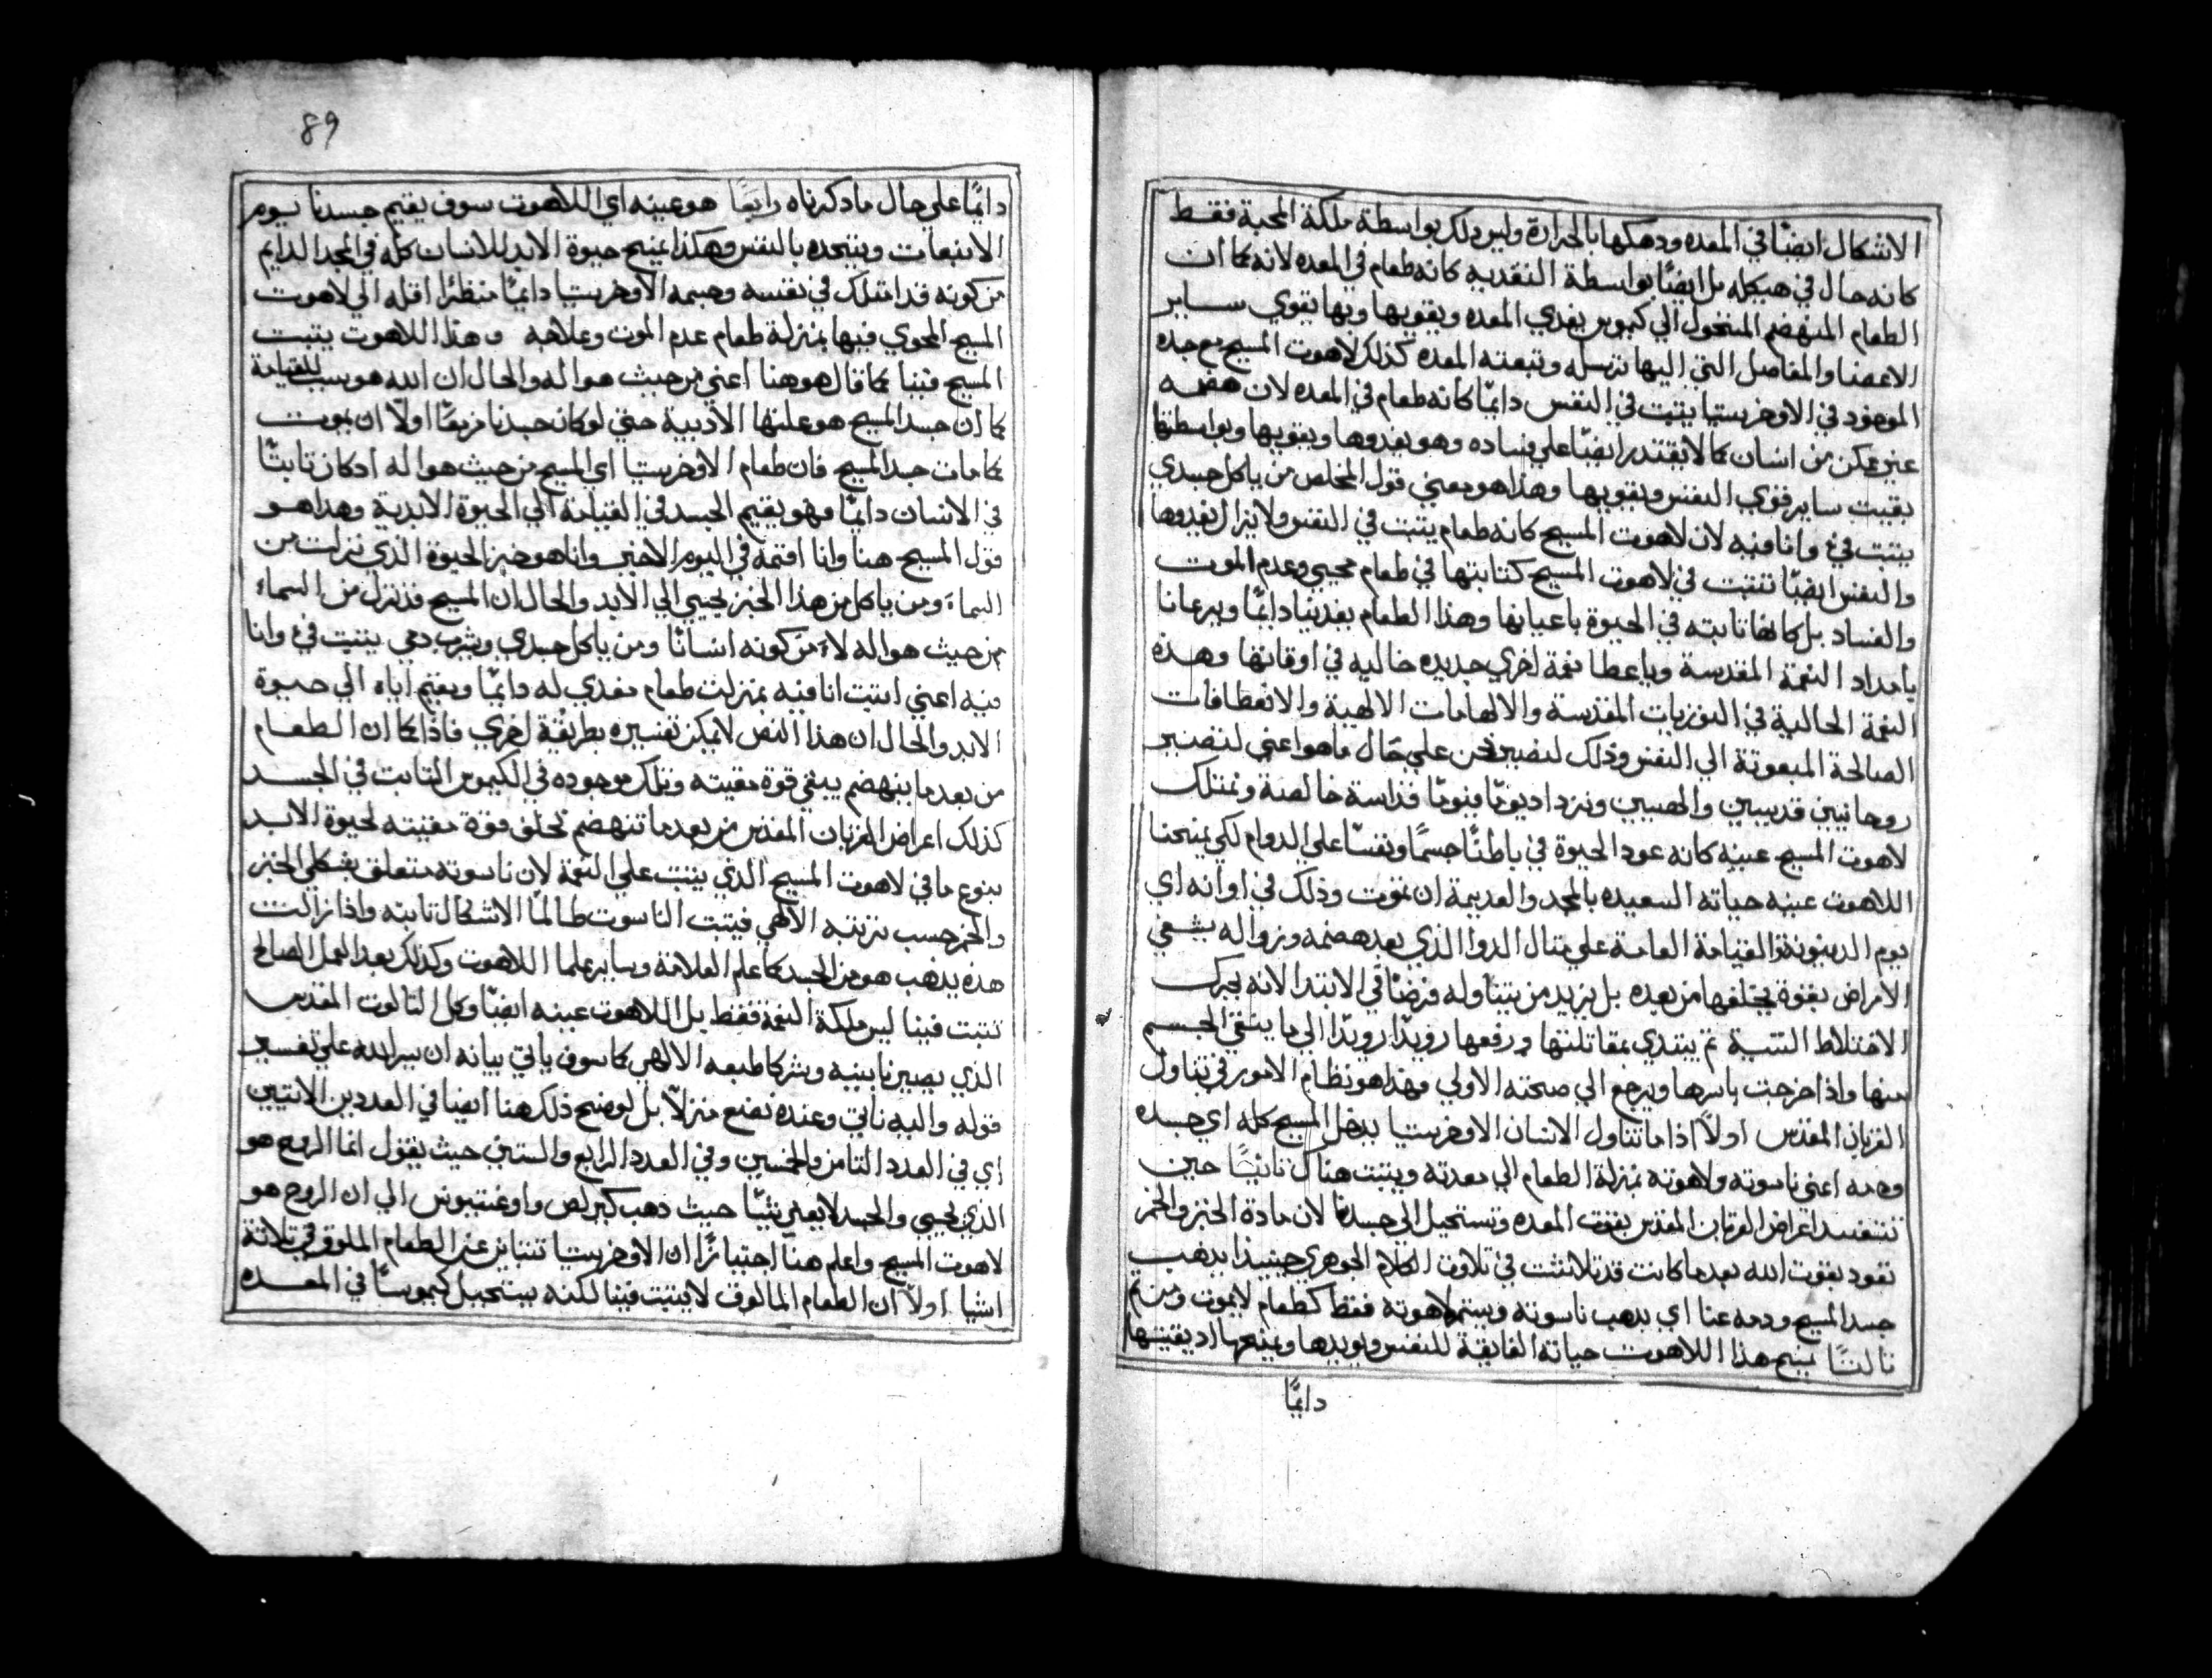 الاشكال ايضًا في المعده ودهكها بالحرارة وليس ذلك بواسطة ملكة المحبة فقط
كانه حال في هيكله بل ايضًا بواسطة التغديه كانه طعام في المعده لانه كما ان
الطعام المنهضم المتحول الي كيموس يغدي المعده ويقويها وبها يقوي ساير
الاعضا والمفاصل التي اليها ترسله وتبعته المعده كذلك لاهوت المسيح مع جسده
الموجود في الاوخرستيا يتبت في النفس دايمًا كانه طعام في المعده لان هضمه
غير ممكن من انسان كما لا يقتدر ايضًا علي فساده وهو يغدوها ويقويها وبواسطتها
بقيت ساير قوي النفس ويقويها وهذا هو معني قول المخلص من ياكل جسدي
يتبت فيّ وانا فيه لان لاهوت المسيح كانه طعام يتبت في النفس ولا يزال يغدوها
والنفس ايضًا تتبت في لاهوت المسيح كتباتها في طعام محيي وعدم الموت
والفساد بل كانها تابته في الحيوة باعيانها وهذا الطعام يغدينا دايمًا ويرعانا
بامداد النعمة المقدسة وباعطا نعمة اخري جديده خاليه في اوقاتها وهذه
النعمة الحالية في التوزيات المقدسة والالهامات الالهية والانعطافات
الصالحة المبعوتة الي النفس وذلك لنصير نحن علي حال ما هو اعني لنصير
روحانيين قديسين والهيين ونزداد يومًا فيومًا قداسة خالصة ونمتلك
لاهوت المسيح عينه كانه عود الحيوة في باطننا جسمًا ونفسًا علي الدوام لكي يمنحنا
اللاهوت عينه حياته السعيده بالمجد والعديمة ان تموت وذلك في اوانه اي
يوم الدينونة والقيامة العامة علي متال الدوا الذي بعد هضمه وزواله يشفي
الامراض بقوة يخلفها من بعده بل يزيد من يتناوله فرضًا في الابتدا لانه يحرك
الاختلاط الرديه تم يبتدي بمقاتلتها ورفعها رويدًا رويدًا الي ما ينقي الجسم
منها واذا خرجت باسرها ويرجع الي صحته الاولي فهذا هو نظام الامور في تناول
القربان المقدس اولًا اذا ما تناول الانسان الاوخرستيا يدخل المسيح كله اي جسده
ودمه اعني ناسوته ولاهوته بمنزلة الطعام الي معدته ويتبت هناك تانيًا حين
تنفسد اعراض القربان المقدس بقوت المعده وتستحيل الي جسدنا لان مادة الخبز والخمر
تعود بقوت الله بعدما كانت قد تلاشت في تلاوت الكلام الجوهري حينيذ يدهب
جسد المسيح ودمه عنا اي يدهب ناسوته ويستمر لاهوته فقط كطعام لا يموت ومن تم
تالتًا يمنح هذا اللاهوت حياته الفايقة للنفس ويويدها ويمتعها اد يقيتها
دايمًا
89
دايمًا علي حال ما دكرناه رابعًا هو عينه اي اللاهوت سوف يقيم جسدنا يوم
الانبعات ويتحده بالنفس وهكذا يمنح حيوة الابد للانسان كله في المجد الدايم
من كونه قد امتلك في نفسه وجسمه الاوخرستيا دايمًا منظرًا اقله الي لاهوت
المسيح المحوي فيها بمنزلة طعام عدم الموت وعلاهه وهذا اللاهوت يتبت
المسيح فينا كما قال هو هنا اعني من حيث هو اله والحال ان الله هو سبب للقيامة
كما ان جسد المسيح هو علتها الادبية حتي لو كان جسدنا مزمعًا اولًا ان يموت
كما مات جسد المسيح فان طعام الاوخرستيا اي المسيح من حيث هو اله اد كان تابتًا
في الانسان دايمًا فهو يقيم الجسد في القيامة الي الحيوة الابدية وهدا هو
قول المسيح هنا وانا اقيمه في اليوم الاخير وانا هو خبز الحيوة الذي نزلت من
السماء ومن ياكل من هذا الخبز يحيي الي الابد والحال ان المسيح قد نزل من السماء
من حيث هو اله لا من كونه انسانًا ومن ياكل جسدي ويشرب دمي يتبت فيّ وانا
فيه اعني اتبت انا فيه بمنزلت طعام مغدي له دايمًا ويقيم اياه الي حيوة
الابد والحال ان هذا النص لا يمكن تفسيره بطريقة اخري فاذًا كما ان الطعام
من بعدما ينهضم يبقي قوة مقيته وتلك موجوده في الكيموس التابت في الجسد
كذلك اعراض القربان المقدس من بعدما تنهضم تخلف قوة مقيته لحيوة الابد
بنوع ما في لاهوت المسيح الذي يتبت علي النعمة لان ناسوته متعلق بشكلي الخبز
والخمر حسب ترتيبه الالهي فيتبت الناسوت طالما الاشكال تابته واذا زالت
هذه يدهب هو من الجسد كما علم العلامة وساير علما اللاهوت وكذلك بعد العمل الصالح
تتبت فينا ليس ملكة النعمة فقط بل اللاهوت عينه ايضًا وكل التالوت المقدس
الذي يصيرنا بنيه وشركا طبعه الالهي كما سوف ياتي بيانه ان يسر الله علي تفسير
قوله واليه ناتي وعنده نصنع منزلًا بل يوضح ذلك هنا ايضا في العددين الاتيين
اي في العدد التامن والخمسين وفي العدد الرابع والستين حيث يقول انما الروح هو
الذي يحيي والجسد لا يعني شيًا حيث دهب كيرلص واوغستينوس الي ان الروح هو
لاهوت المسيح واعلم هنا اجتيازًا ان الاوخرستيا تتباين عن الطعام المالوف في تلاتة
اشيا اولًا ان الطعام المالوف لا يتبت فينا لكنه يستحيل كيموسًا في المعده